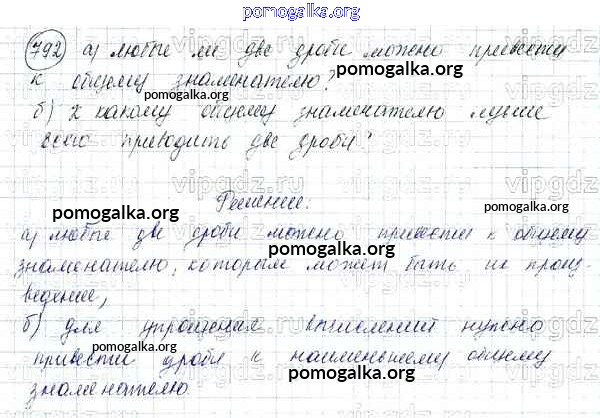 pomogalka.org
792 а) любые ли две дроби можно привести
к общему знаменателю?
pomogalka.org
б) К какому общему знаменателю лучше
всего приводить две дроби?
pomogalka.org
vipgdz
Решение:
pomogalka.org
pomogalka.org
а) любые две дроби можно привести к общему
pomogalka.org
знаменателю, которым может быть их произ-
ведение,
vipgdz
pomogalka.org
б) для упрощения вычислений нужно
pomogalka.org
привести дроби к наименьшему общему
pomogalka.org
знаменателю.